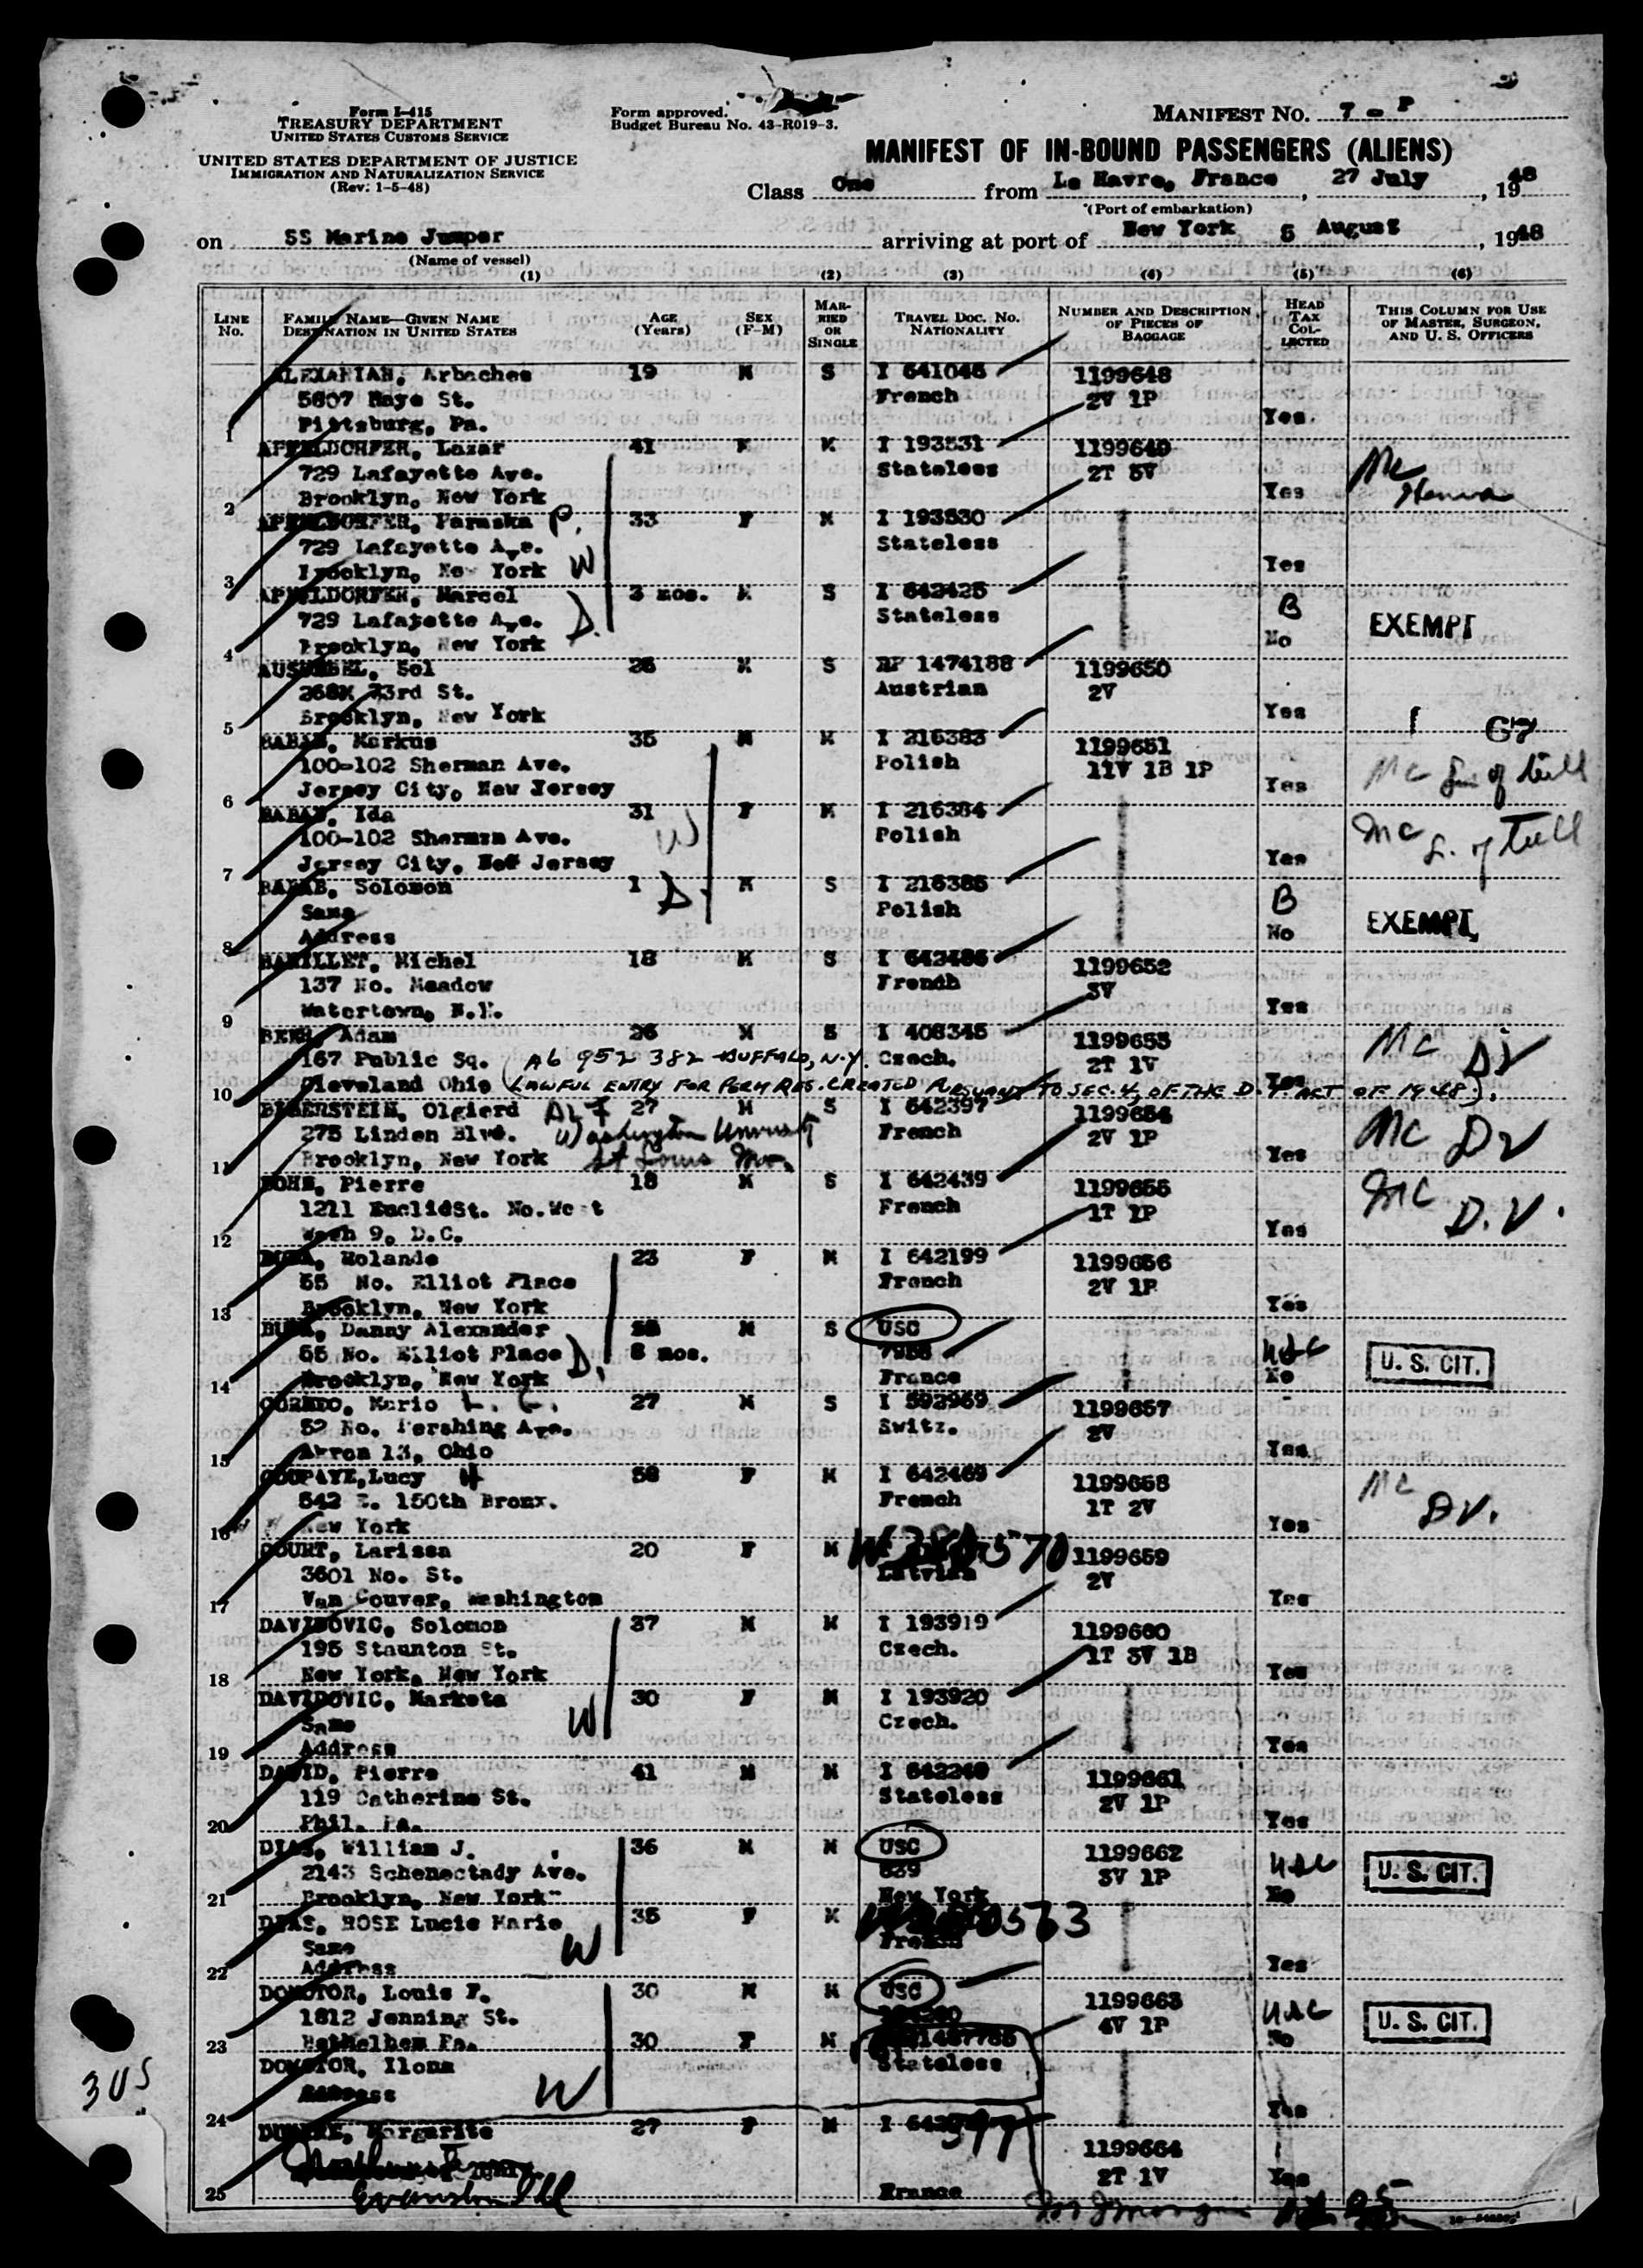 Form I-415
TREASURY DEPARTMENT
UNITED STATES CUSTOMS SERVICE
UNITED STATES DEPARTMENT OF JUSTICE
IMMIGRATION AND NATURALIZATION SERVICE
(Rev. 1-5-48)
Form approved.
Budget Bureau No. 43-R019-3.
MANIFEST NO. 7 - P
MANIFEST OF IN-BOUND PASSENGERS (ALIENS)
Class One from Le Havre, France, 27 July, 1948
(Port of embarkation)
on SS Marine Jumper arriving at port of New York 5 August, 1948
(Name of vessel)
(1) (2) (3) (4) (5) (6)
LINE No. FAMILY NAME—GIVEN NAME DESTINATION IN UNITED STATES AGE (Years) SEX (F-M) MARRIED OR SINGLE TRAVEL DOC. NO. NATIONALITY NUMBER AND DESCRIPTION OF PIECES OF BAGGAGE HEAD TAX COLLECTED THIS COLUMN FOR USE OF MASTER, SURGEON, AND U. S. OFFICERS
ALEXANIAN, Arbaches 19 M S I 641046 1199648
5607 Maye St. French 2V 1P
1 Pittsburg, Pa. Yes
APFELDORFER, Lazar 41 M I 193531 1199649
729 Lafayette Ave. Stateless 2T 5V
2 Brooklyn, New York Yes Mc
APFELDORFER, Paraska P. 33 F M I 193530
729 Lafayette Ave. Stateless
3 Brooklyn, New York W Yes
APFELDORFER, Marcel 3 mos. M S I 642425
729 Lafayette Ave. D. Stateless B EXEMPT
4 Brooklyn, New York No
AUSUBEL, Sol 26 M S RP 1474188 1199650
23rd St. Austrian 2V
5 Brooklyn, New York Yes
BABAB, Markus 35 M M I 216383 1199651
100-102 Sherman Ave. Polish 11V 1B 1P
6 Jersey City, New Jersey Yes Mc
BABAB, Ida 31 F M I 216384
100-102 Sherman Ave. W Polish Mc
7 Jersey City, New Jersey Yes
BABAB, Solomon 1 D. M S I 216385
Same Polish B EXEMPT
8 Address No
BARILLET, Michel 18 M S I 642486 1199652
137 No. Meadow French 3V
9 Watertown, N.Y. Yes
Adam 26 M S I 408345 1199653
167 Public Sq. A6 952 382 - BUFFALO, N.Y. Czech. 2T 1V Mc DV
10 Cleveland Ohio (LAWFUL ENTRY FOR PERM RES. CREATED PURSUANT TO SEC. 4, OF THE D.P. ACT OF 1948).
BIBERSTEIN, Olgierd 27 M S I 642397 1199654
275 Linden Blvd. Washington University French 2V 1P Mc DV
11 Brooklyn, New York St Louis Mo. Yes
BOHN, Pierre 18 M S I 642439 1199655
1211 EuclidSt. No.West French 1T 1P Mc D.V.
12 Wash 9, D.C. Yes
Rolande 23 F M I 642199 1199656
55 No. Elliot Place French 2V 1P
13 Brooklyn, New York Yes
Danny Alexander M S USC
55 No. Elliot Place D. 8 mos. 7956 USC U. S. CIT.
14 Brooklyn, New York France No
Mario 27 M S I 592969 1199657
52 No. Pershing Ave. Switz. 2V
15 Akron 13, Ohio Yes
COUPAYE, Lucy H 58 F M I 642469 1199658
542 E. 150th Bronx. French 1T 2V Mc DV.
16 New York Yes
COURT, Larissa 20 F M 1199659
3601 No. St. Latvian 2V
17 Van Couver, Washington Yes
DAVIDOVIC, Solomon 37 M M I 193919 1199660
195 Staunton St. Czech. 1T 3V 1B
18 New York, New York Yes
DAVIDOVIC, Marketa 30 F M I 193920
Same W Czech.
19 Address Yes
DAVID, Pierre 41 M M I 642249 1199661
119 Catherine St. Stateless 2V 1P
20 Phil. Pa. Yes
DIAS, William J. 36 M M USC 1199662
2143 Schenectady Ave. 839 3V 1P USC U. S. CIT.
21 Brooklyn, New York New York No
DIAS, ROSE Lucie Marie 35 F M
Same W French
22 Address Yes
DOMOTOR, Louis F. 30 M M USC 1199663
1812 Jenning St. 4V 1P USC U. S. CIT.
23 Bethelhem Pa. 30 F M No
DOMOTOR, Ilona Stateless
24 Address W Yes
Margarite 27 F M I 1199664
2T 1V
25 Evanston Ill France Yes